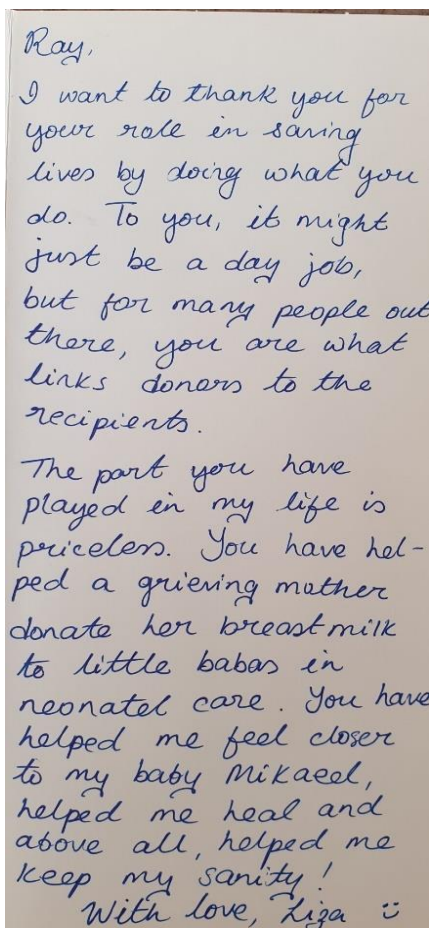 Ray,
I want to thank you for
your role in saving
lives by doing what you
do. To you, it might
just be a day job,
but for many people out
there, you are what
links donors to the
recipients.
The part you have
played in my life is
priceless. You have hel-
ped a grieving mother
donate her breastmilk
to little babas in
neonatel care. You have
helped me feel closer
to my baby Mikaeel,
helped me heal and
above all, helped me
keep my sanity!
With love, Liza :)